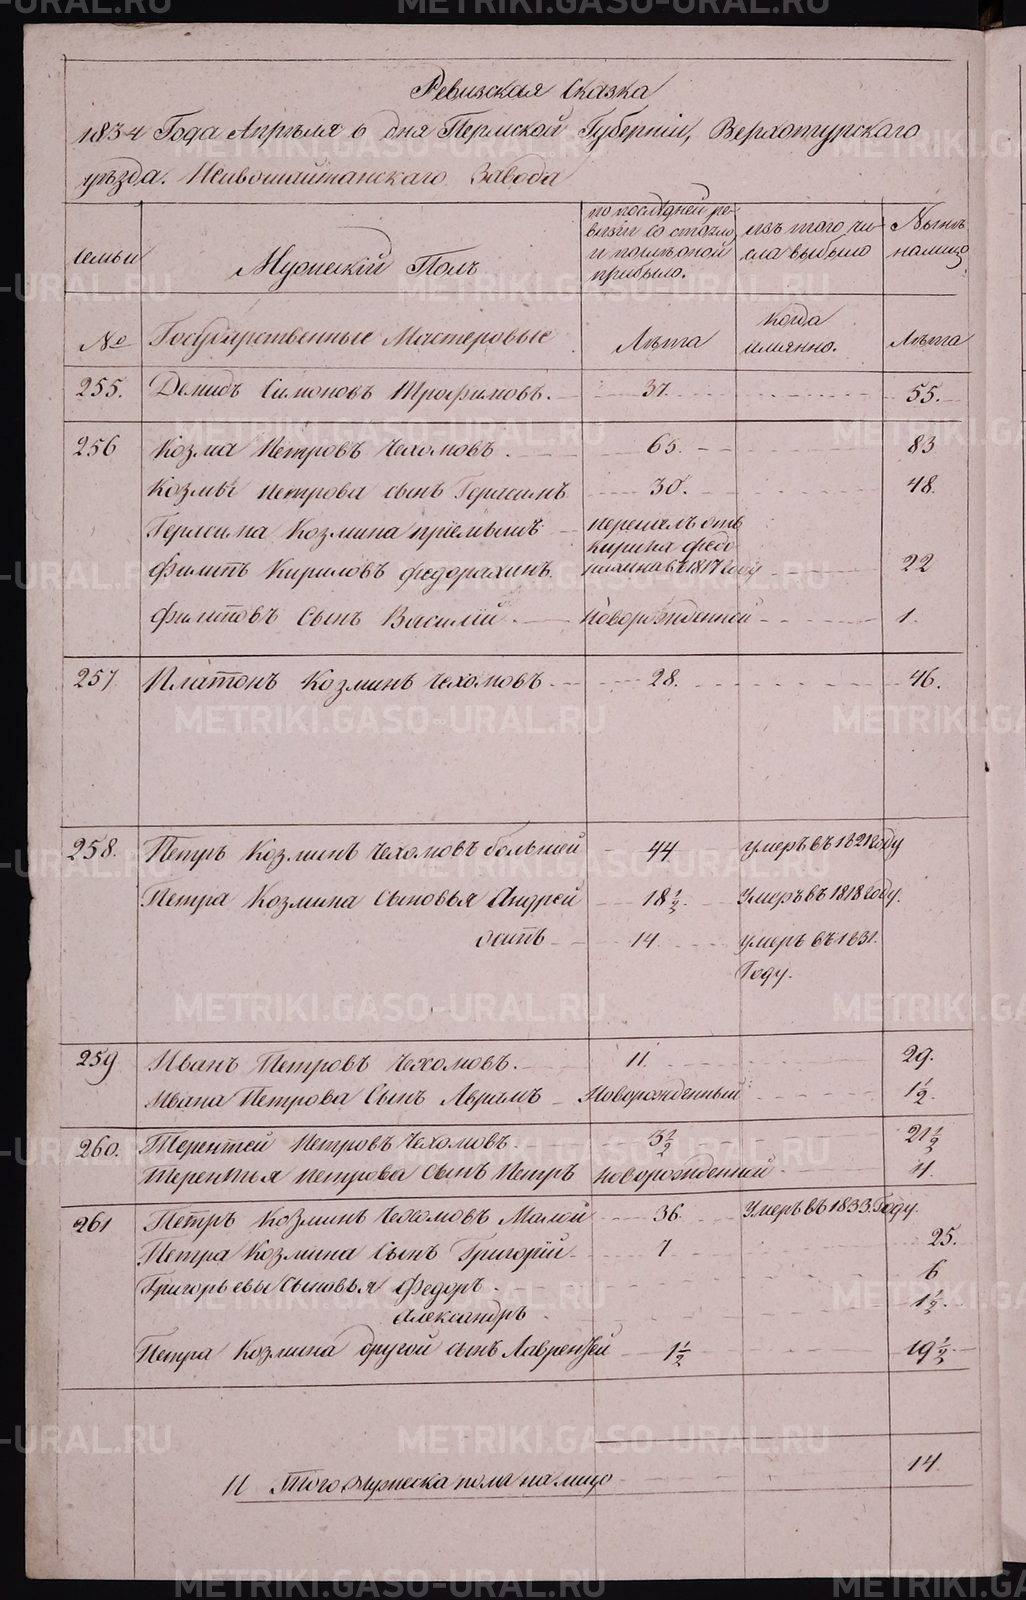 Ревизская Сказка
1834 Года Апрѣля 6 дня Пермской Губерніи, Верхотурскаго
уѣзда. Нейвошайтанскаго Завода
семьи
Мужескій Полъ
по послѣдней ре-
визіи состояло,
и послѣ оной
прибыло.
изъ того чи-
сла выбыло
Нынѣ
на лицо
№
Государственные Мастеровые
Лѣта
когда
имянно.
Лѣта
255. Демидъ Симоновъ Трофимовъ. 37. 55.
256 Козма Петровъ Чехомовъ. 65. 83
Козмы Петрова сынъ Герасимъ 30. 48.
Герасима Козмина пріемышъ
Филипъ Кириловъ Федорахинъ.
перешелъ отъ
Кирила Федо
рахина въ 1817 году
22
Филиповъ Сынъ Василій. Новорожденной 1.
257 Платонъ Козминъ Чехомовъ 28. 46.
258. Петръ Козминъ Чехомовъ большей 44 умеръ въ 1821 году
Петра Козмина Сыновья Андрей 18 1/2. Умеръ въ 1818 году.
Осипъ 14. умеръ въ 1831.
Году.
259 Иванъ Петровъ Чехомовъ. 11. 29.
Ивана Петрова Сынъ Аврамъ Новорожденный 1 1/2.
260. Терентей Петровъ Чехомовъ. 3 1/2 21 1/2
Терентья Петрова Сынъ Петръ Новорожденной 4.
261 Петръ Козминъ Чехомовъ Малой 36. Умеръ въ 1833. Году.
Петра Козмина Сынъ Григорій 7 25.
Григорьевы Сыновья Федоръ 6
Александръ 1 1/2.
Петра Козмина другой сынъ Лаврентей 1 1/2 19 1/2
Итого мужеска пола на лицо 14
METRIKI.GASO-URAL.RU